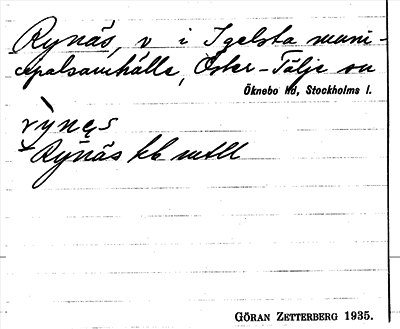 Rynäs, v i Igelsta muni-
cipalsamhälle, Öster-Tälje sn
Öknebo hd, Stockholms l.
rỳnęs
Rynäs kk mtll
GÖRAN ZETTERBERG 1935.